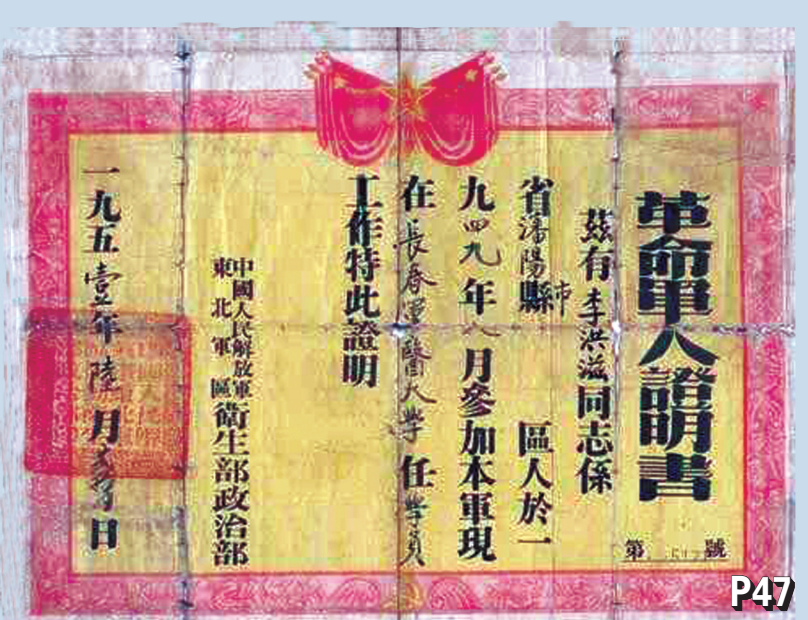 革命軍人證明書
第 號
茲有李洪滋同志係
省瀋陽縣市 區人於一
九四九年八月參加本軍現
在長春軍醫大學任學員
工作特此證明
中國人民解放軍
東北軍區
衛生部政治部
一九五壹年陸月 日
P47